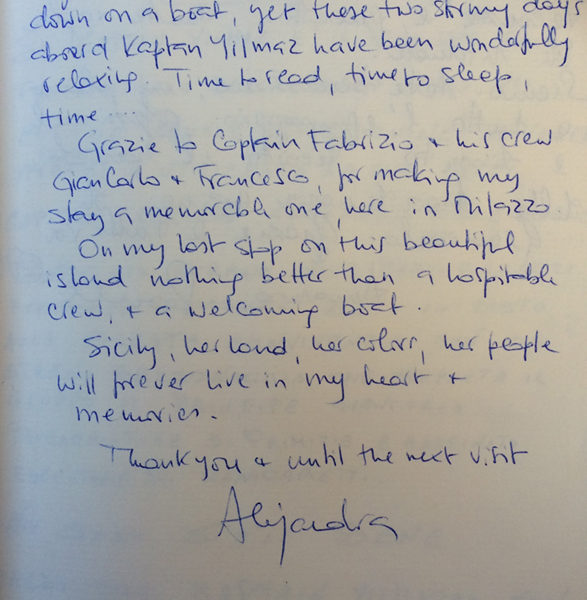 down on a boat, yet these two stormy days
aboard Kaptan Yilmaz have been wonderfully
relaxing. Time to read, time to sleep,
time ...
Grazie to Captain Fabrizio + his crew
GianCarlo + Francesco, for making my
stay a memorable one, here in Milazzo.
On my last stop on this beautiful
island nothing better than a hospitable
crew, + a welcoming boat.
Sicily, her land, her colors, her people
will forever live in my heart +
memories.
Thank you + until the next visit
Alejandra